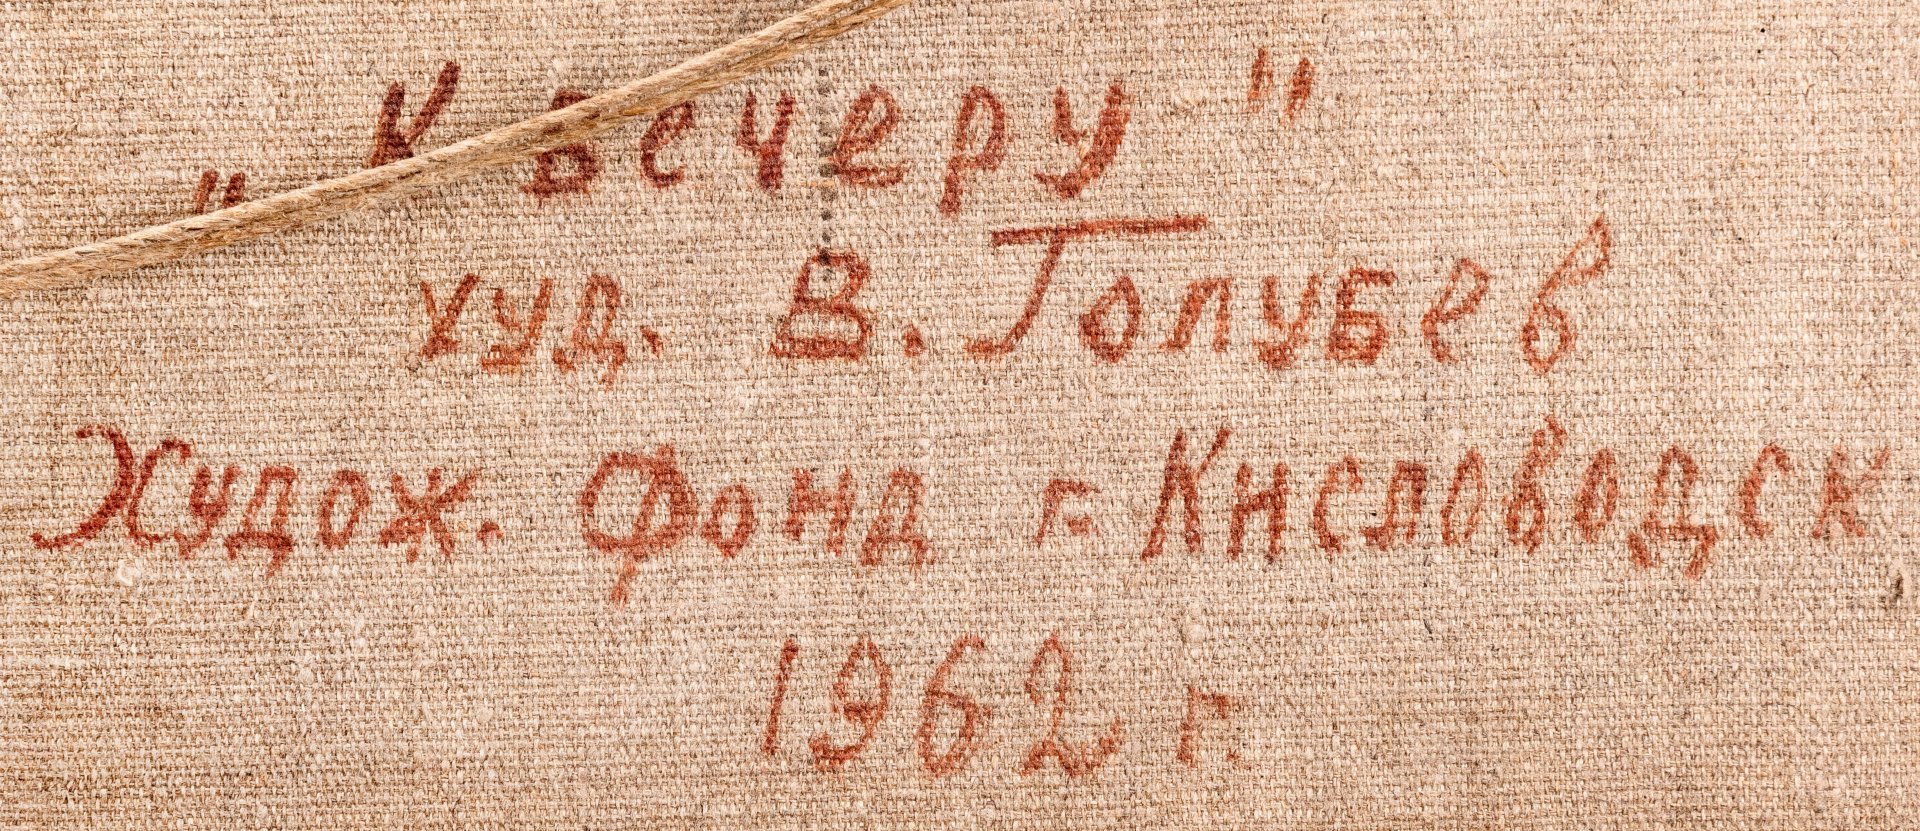 "К вечеру"
худ. В. Голубев
Худож. Фонд г. Кисловодск
1962 г.